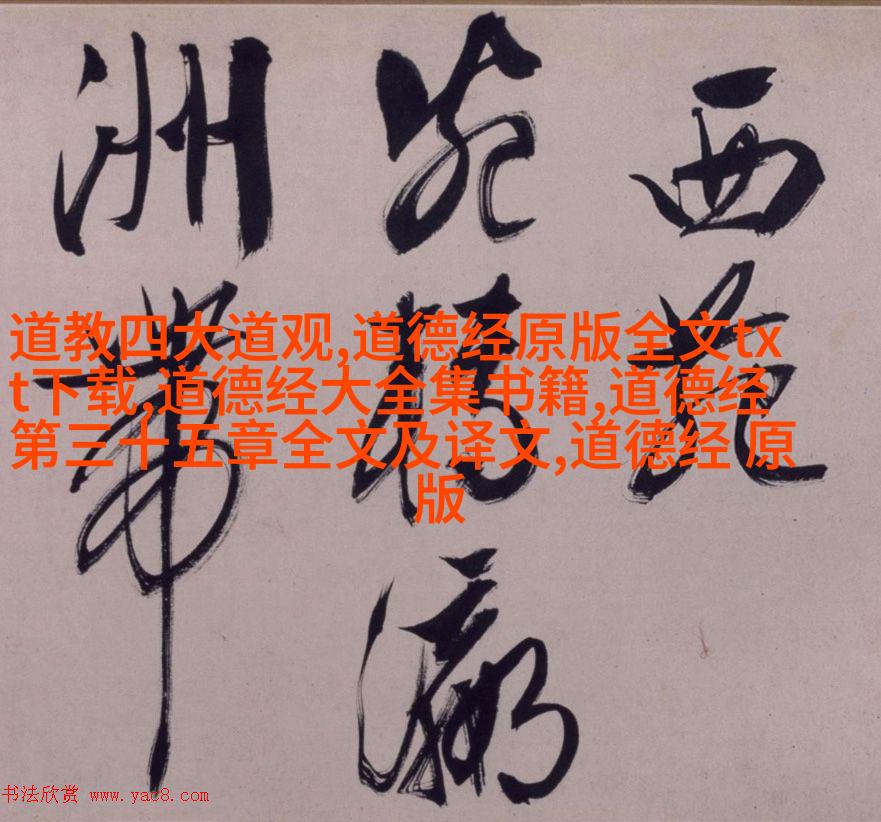 西苑
瀛
洲帶
道教四大道观,道德经原版全文tx
t下载,道德经大全集书籍,道德经
第三十五章全文及译文,道德经 原
版
书法欣赏 www.yac8.com